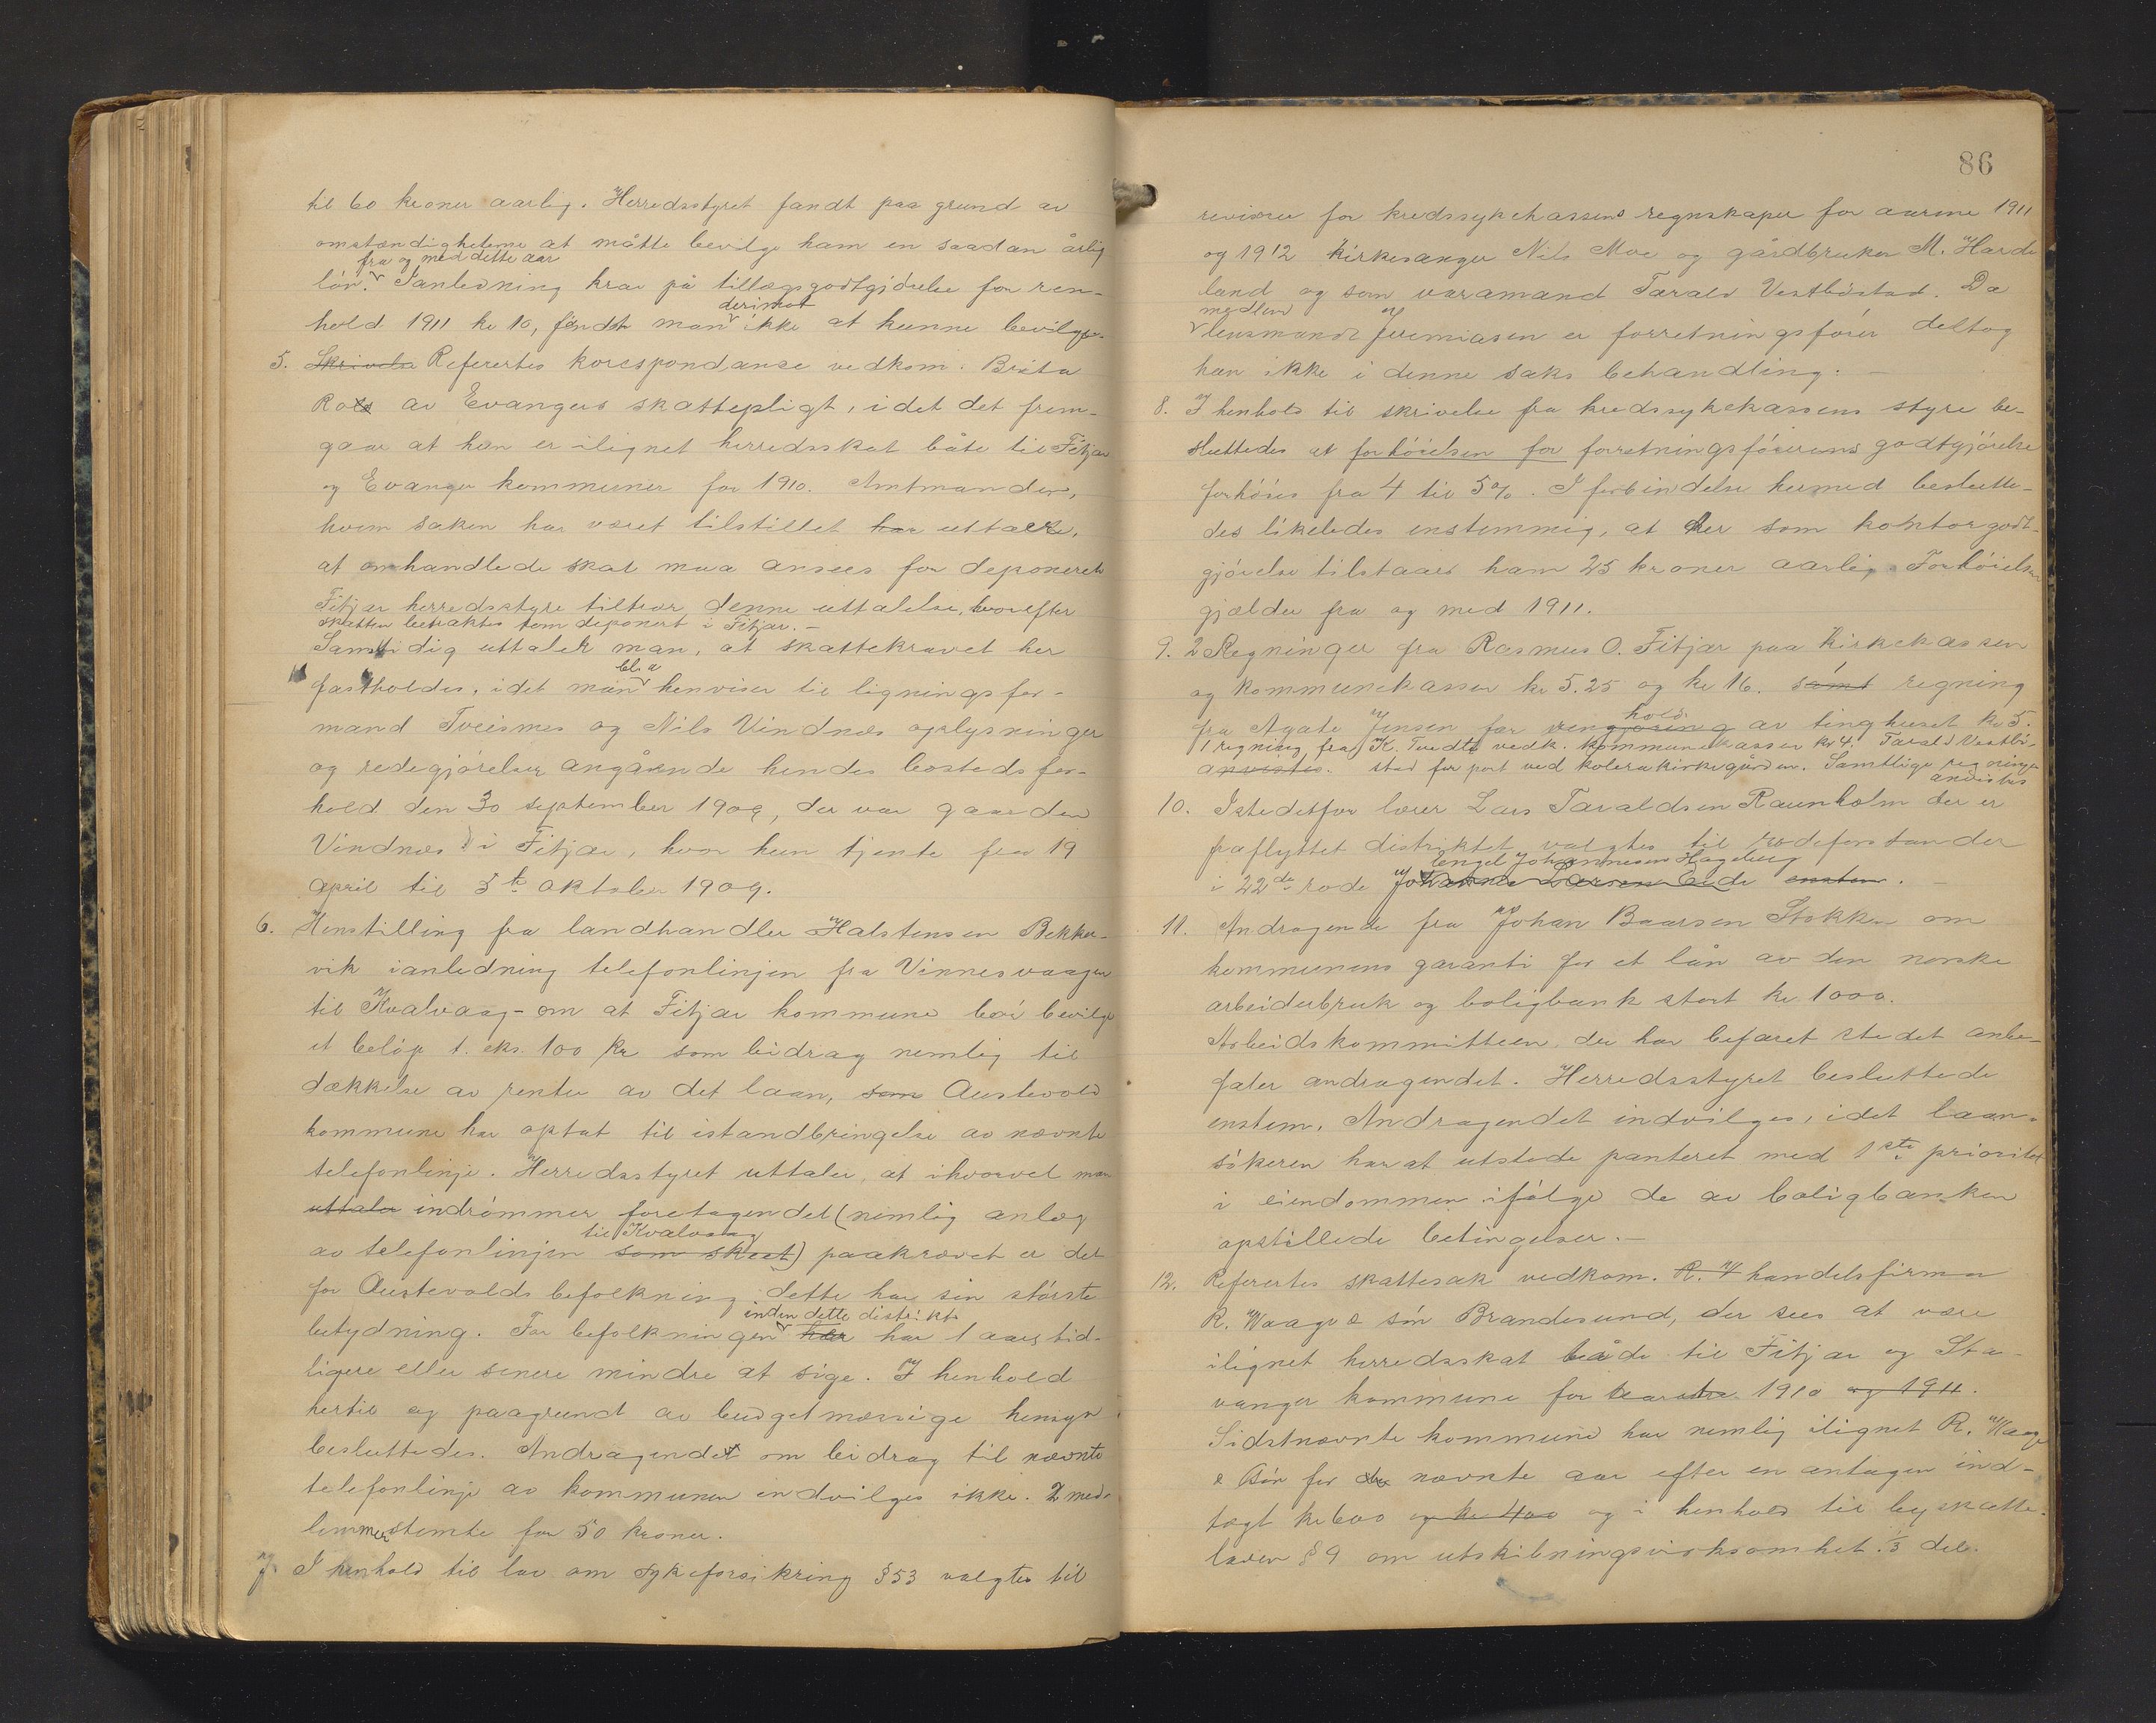 til 60 kroner aarlig. Herredsstyret fandt paa grund av
omstændigheterne at måtte bevilge ham en saadan årlig
fra og med dette aar
lön. Ianledning krav på tillægsgodtgjörelse for ren-
derimot
hold 1911 kr 10, fandt man ikke at kunne bevilge.
5. Skrivelse Refertes korespondanse vedkom. Brita
av Evangers skattepligt, idet det frem-
gaar at hun er ilignet herredsskat både til Fitjar
og Evanger kommuner for 1910. Amtmanden,
hvem saken har været tilstillet har uttalt,
at omhandlede skat maa ansees for deponert
Fitjar herredsstyre tiltrær denne uttalelse, hvorefter
skatten betraktes som deponert i Fitjar. —
Samtidig uttaler man, at skattekravet her
bl. a
fastholdes, idet man henviser til ligningsfor-
mand Tveisme's og Nils Vindnæs oplysninger
og redegjörelser angående hendes bostedsfor-
hold den 30 september 1909, der var gaarden
Vindnæs i Fitjar, hvor hun tjente fra 19
april til 5te oktober 1909.
6. Henstilling fra landhandler Halstensen Bekker-
vik ianledning telefonlinjen fra Vinnesvaagen
til Kvalvaag - om at Fitjar kommune bör bevilge
et belöp t. eks. 100 kr som bidrag nemlig til
dækkelse av renter av det laan, som Austevold
kommune har optat til istandbringelse av nævnte
telefonlinje. Herredsstyret uttaler, at ihvorvel man
uttaler indrömmer foretagendet (nemlig anlæg
til Kvalvaag
av telefonlinjen som skeet) paakrævet er det
for Austevolds befolkning dette har sin störste
inden dette distrikt
betydning. For befolkningen her har 1 aars tid-
ligere eller senere mindre at sige. I henhold
hertil og paagrund av budgetmæssige hensyn
besluttedes. Andragendet om bidrag til nævnte
telefonlinje av kommunen indvilges ikke. 2 med-
lemmer stemte for 50 kroner.
7. I henhold til lov om sykeforsikring § 53 valgtes til
86
revisorer for kredssykekassens regnskaper for aarene 1911
og 1912 kirkesanger Nils Moe og gårdbruker M. Harde
land og som varamand Tarald Vestböstad. Da
medlem
lensmand Jeremiasen er forretningsförer deltog
han ikke i denne saks behandling. —
8. I henhold til skrivelse fra kredssykekassens styre be-
sluttedes at forhöielsen for forretningsförerens godtgjörelse
forhöies fra 4 til 5%. I forbindelse hermed beslutte-
des likeledes enstemmig, at der som kontorgodt-
gjörelse tilstaaes ham 25 kroner aarlig. Forhöielsen
gjælder fra og med 1911.
9. 2 Regninger fra Rasmus O. Fitjar paa Kirkekassen
og kommunekassen kr 5.25 og kr 16. samt regning
hold
fra Agate Jensen for rengjöring av tinghuset kr 5.
1 regning fra K. Tvedte vedk. kommunekassen kr 4. Tarald Vestbö-
anvistes. stad for port ved kolerakirkegården. Samtlige regninger
anvistes
10. Istedetfor lærer Lars Taraldsen Raunholm der er
fraflyttet distriktet valgtes til rodeforstander
Engel Johannesen Hageberg
i 22de rode Johannes Larsen Eide enstem. —
11. Andragende fra Johan Baarsen Stokken om
kommunens garanti for et lån av den norske
arbeiderbruk og boligbank stort kr. 1000.
Arbeidskommitteen der har befaret stedet anbe-
faler andragendet. Herredsstyret besluttede
enstem. Andragendet indvilges, idet laan-
sökeren har at utstede panteret med 1ste prioritet
i eiendommen ifölge de av boligbanken
opstillede betingelser. —
12. Refertes skattesak vedkom. R. W handelsfirma
R. Waage & sön Brandesund, der sees at være
ilignet herredsskat både til Fitjar og Sta-
vanger kommune for aarene 1910 og 1911.
Sidstnævnte kommune har nemlig ilignet R. Waage
& Sön for de nævnte aar efter en antagen ind-
tægt kr 600 og kr 400 og i henhold til byskatte-
loven § 9 om utskibningsvirksomhet. 1/3 del.